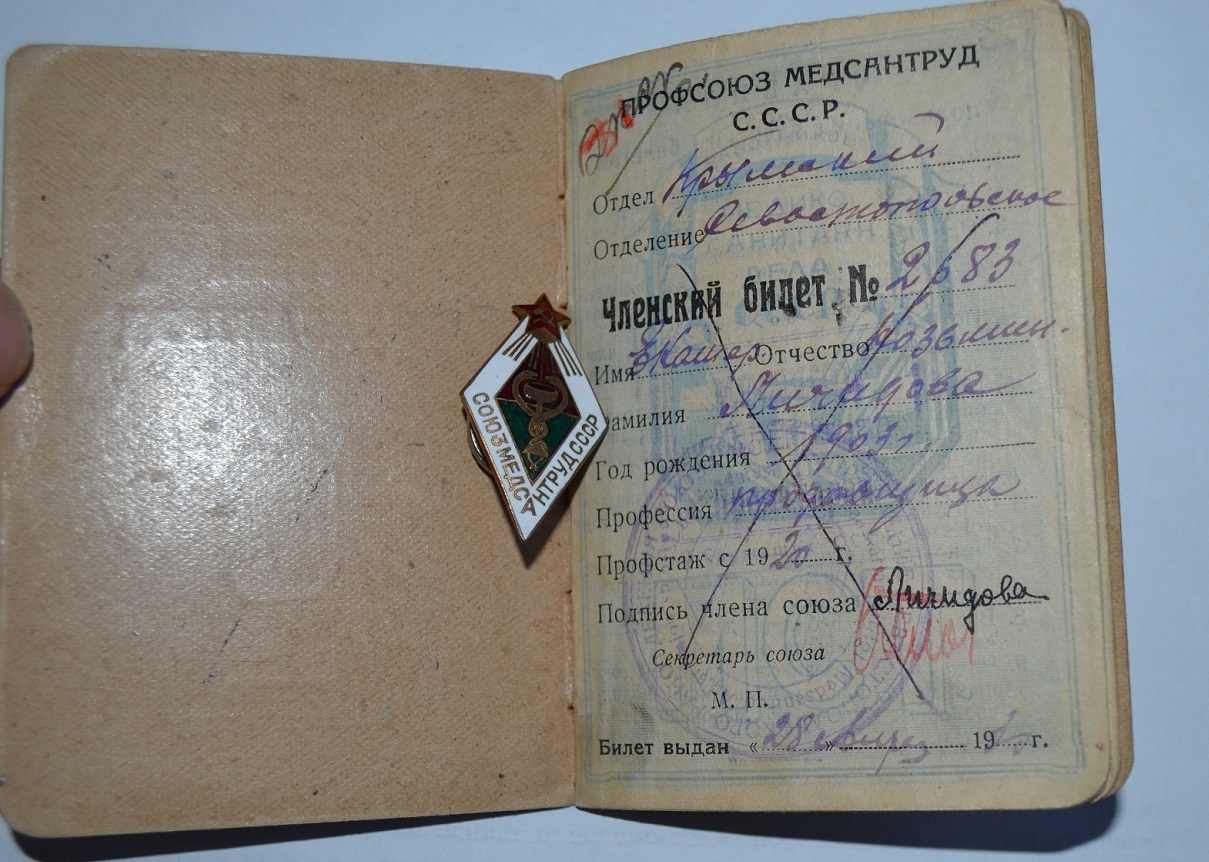 ПРОФСОЮЗ МЕДСАНТРУД
С. С. С. Р.
Отдел Крымский
Отделение Севастопольское
Членский билет № 2683
Имя Екатер Отчество Козьмин.
Фамилия Личидова
Год рождения 1903 г.
Профессия
Профстаж с 1920 г.
Подпись члена союза Личидова
Секретарь союза
М. П.
Билет выдан « 28 » 19 г.
СОЮЗ МЕДСАНТРУД СССР